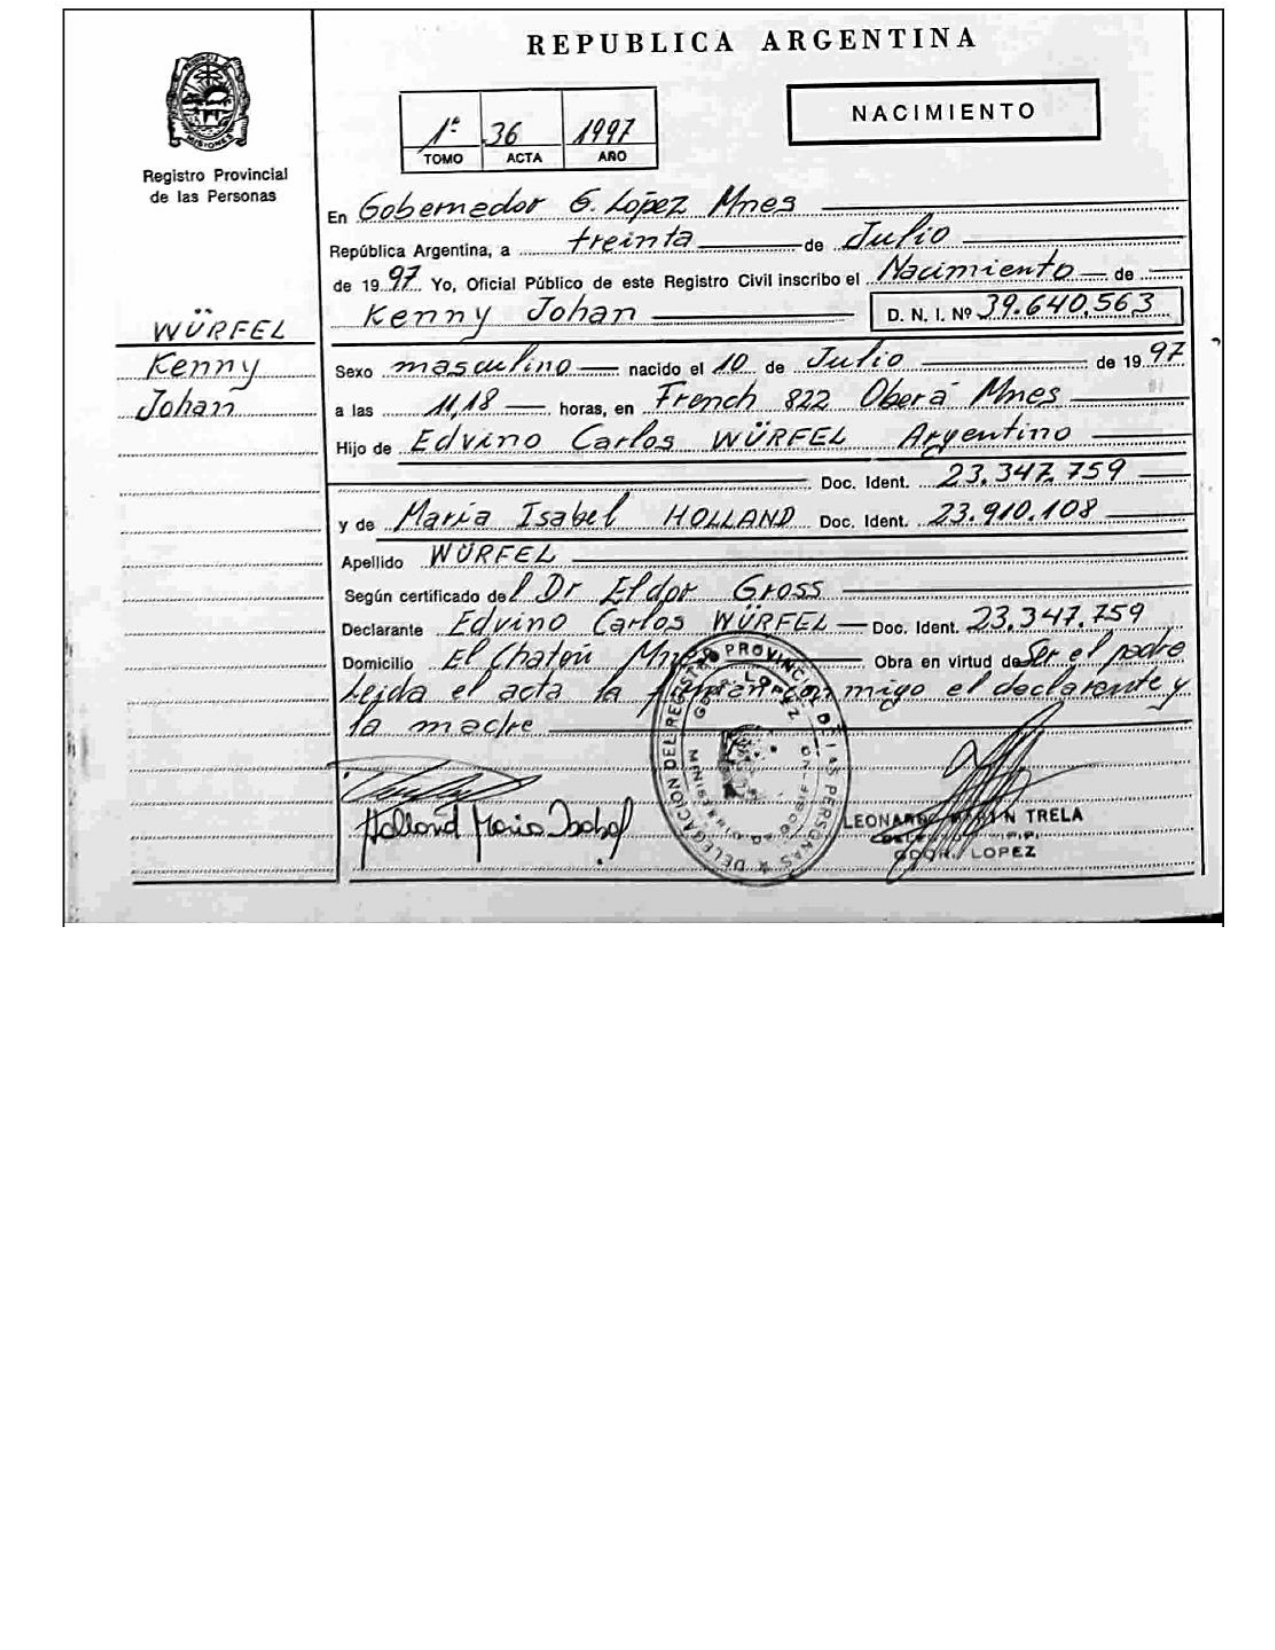 REPUBLICA ARGENTINA
NACIMIENTO
1º 36 1997
TOMO ACTA AÑO
MISIONES
Registro Provincial
de las Personas
En Gobernador G. López Mnes
República Argentina, a treinta de Julio
de 1997 Yo, Oficial Público de este Registro Civil inscribo el Nacimiento de
Kenny Johan D. N. I. Nº 39.640.563
WÜRFEL
Kenny
Johan
Sexo masculino nacido el 10 de Julio de 1997
a las 11,18 horas, en French 822 Oberá Mnes
Hijo de Edvino Carlos WÜRFEL Argentino
Doc. Ident. 23.347.759
y de María Isabel HOLLAND Doc. Ident. 23.910.108
Apellido WÜRFEL
Según certificado del Dr Eldor Gross
Declarante Edvino Carlos WÜRFEL Doc. Ident. 23.347.759
Domicilio El Chatón Mnes Obra en virtud de Ser el padre
Leida el acta la firman con migo el declarante y
la madre
DELEGACION DEL REGISTRO PROVINCIAL DE LAS PERSONAS
GDOR. LOPEZ
Holland Maria Isabel
LEONARDO TRELA
GDOR. LOPEZ